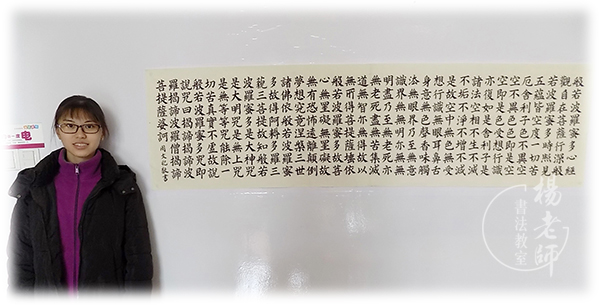 般若波羅蜜多心經
觀自在菩薩行深般
若波羅蜜多時照見
五蘊皆空度一切苦
厄舍利子色不異空
空不異色色即是空
空即是色受想行識
亦復如是舍利子是
諸法空相不生不滅
不垢不淨不增不減
是故空中無色無受
想行識無眼耳鼻舌
身意無色聲香味觸
法無眼界乃至無意
識界無無明亦無無
明盡乃至無老死亦
無老死盡無苦集滅
道無智亦無得以
無所得故菩提薩埵依
般若波羅蜜多故
心無罣礙無罣礙故
無有恐怖遠離顛倒
夢想究竟涅槃三世
諸佛依般若波羅蜜
多故得阿耨多羅三
藐三菩提故知般若
波羅蜜多是大神咒
是大明咒是無上咒
是無等等咒能除一
切苦真實不虛故說
般若波羅蜜多咒即
說咒曰揭諦揭諦波
羅揭諦波羅僧揭諦
菩提薩婆訶
敬書
电
楊老師
書法教室